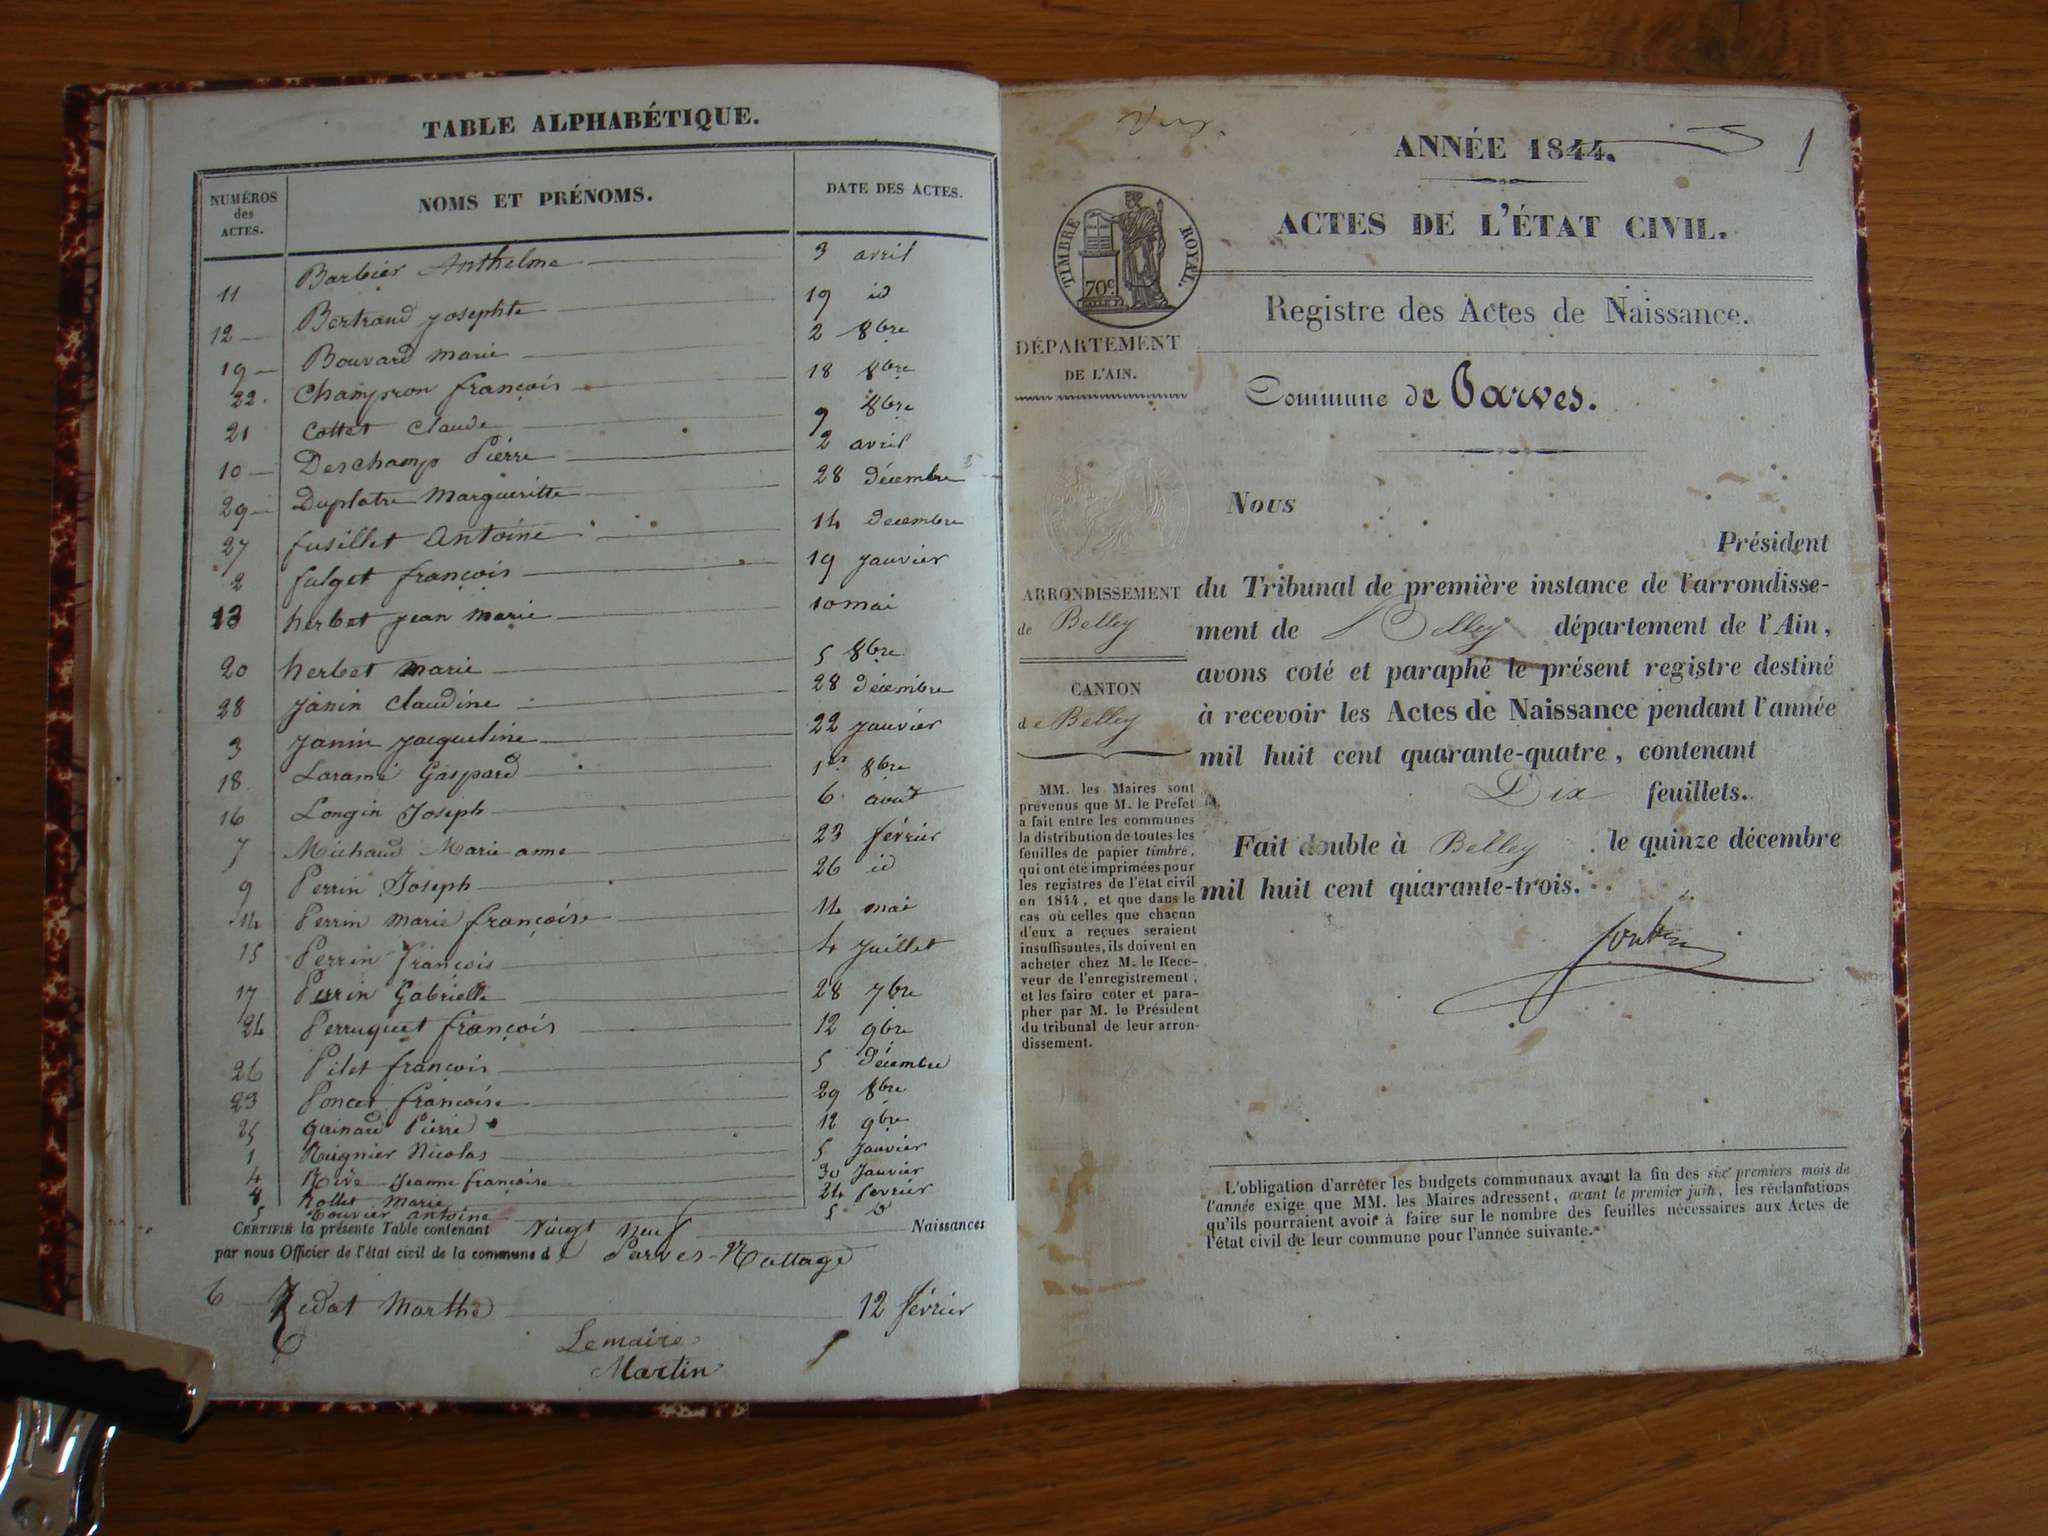 TABLE ALPHABÉTIQUE.
NUMÉROS
des
ACTES.
NOMS ET PRÉNOMS.
DATE DES ACTES.
11 Barbier Anthelme 3 avril
12 Bertrand josephte 19 id
19 Bouvard marie 2 8bre
22 Champron françois 18 8bre
21 Cottet Claude 9 8bre
10 Deschamp Pierre 2 avril
29 Duplatre Margueritte 28 décembre
27 fusillet Antoine 14 decembre
2 fulget françois 19 janvier
13 herbet jean marie 10 mai
20 herbet marie 5 8bre
28 janin Claudine 28 décembre
3 janin jacqueline 22 janvier
18 Laramé Gaspard 1er 8bre
16 Longin Joseph 6 août
7 Michaud Marie anne 23 février
9 Perrin Joseph 26 id
14 Perrin marie françoise 14 mai
15 Perrin françois 4 juillet
17 Perrin Gabrielle 28 7bre
24 Perruquet françois 12 9bre
26 Pilet françois 5 décembre
23 Poncet françoise 29 8bre
25 Pierre 12 9bre
1 Nicolas 5 janvier
4 Rive Jeanne françoise 30 janvier
8 Rollet Marie 24 fevrier
5 Bouvier antoine 5
CERTIFIÉ la présente Table contenant vingt neuf Naissances
par nous Officier de l'état civil de la commune de Parves-Nattage
6 Marthe 12 février
Lemaire
Martin
ANNÉE 1844.
1
TIMBRE ROYAL.
70c
ACTES DE L'ÉTAT CIVIL.
Registre des Actes de Naissance.
DÉPARTEMENT
DE L'AIN.
Commune de Parves.
Nous
Président
du Tribunal de première instance de l'arrondisse-
ment de Belley département de l'Ain,
avons coté et paraphé le présent registre destiné
à recevoir les Actes de Naissance pendant l'année
mil huit cent quarante-quatre, contenant
Dix feuillets.
Fait double à Belley le quinze décembre
mil huit cent quarante-trois.
ARRONDISSEMENT
de Belley
CANTON
de Belley
MM. les Maires sont
prévenus que M. le Préfet
a fait entre les communes
la distribution de toutes les
feuilles de papier timbré,
qui ont été imprimées pour
les registres de l'état civil
en 1844, et que dans le
cas où celles que chacun
d'eux a reçues seraient
insuffisantes, ils doivent en
acheter chez M. le Rece-
veur de l'enregistrement,
et les faire coter et para-
pher par M. le Président
du tribunal de leur arron-
dissement.
L'obligation d'arrêter les budgets communaux avant la fin des six premiers mois de
l'année exige que MM. les Maires adressent, avant le premier juin, les réclamations
qu'ils pourraient avoir à faire sur le nombre des feuilles nécessaires aux Actes de
l'état civil de leur commune pour l'année suivante.